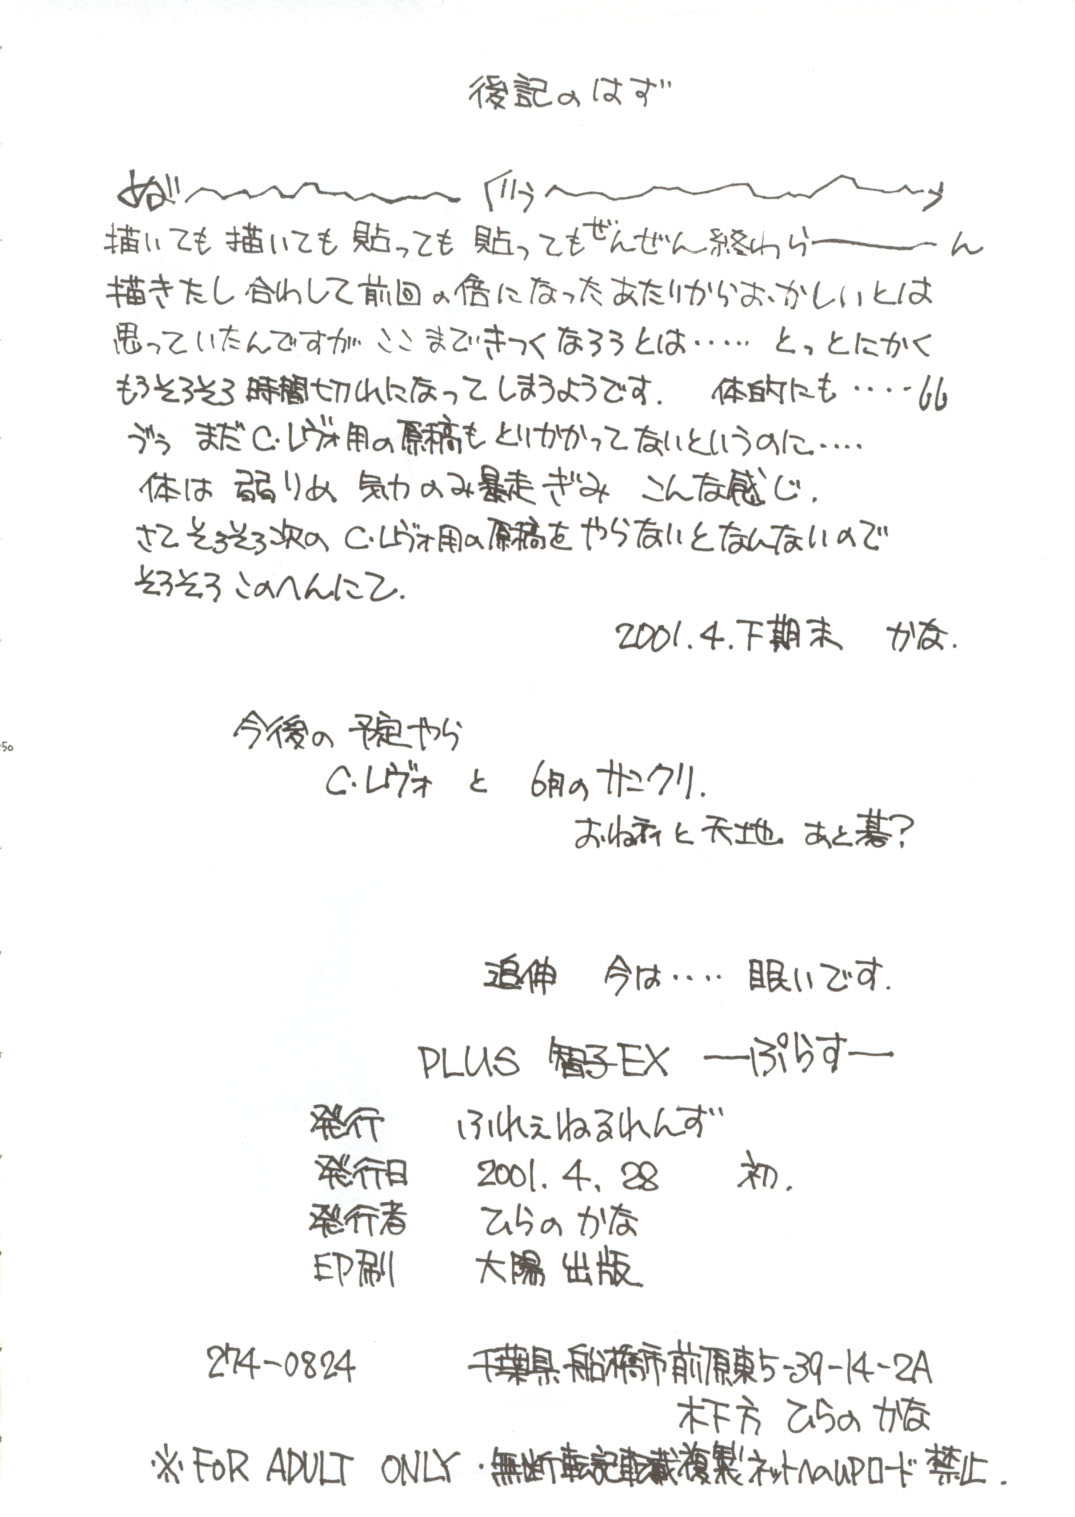 後記のはず
描いても描いても貼っても貼ってもぜんぜん終わら―――ん
描きたし合わして前回の倍になったあたりからおかしいとは
思っていたんですがここまできつくなろうとは‥‥‥ とっとにかく
もうそろそろ時間切れになってしまうようです. 体的にも‥‥
まだC・レヴォ用の原稿もとりかかってないというのに‥‥
体は弱りめ 気力のみ暴走ぎみ こんな感じ.
さてそろそろ次のC・レヴォ用の原稿をやらないとなんないので
そろそろこのへんにて.
2001.4.下期末 かな.
今後の予定やら
C・レヴォ と 6月のサンクリ.
おねティと天地 あと碁?
50
追伸 今は‥‥ 眠いです.
PLUS 智子EX ―ぷらす―
発行 ふれぇねるれんず
発行日 2001.4.28 初.
発行者 ひらの かな
印刷 大陽出版
274-0824 千葉県船橋市前原東5-39-14-2A
木下方 ひらの かな
※FOR ADULT ONLY・無断転記転載複製ネットへのUPロード禁止.